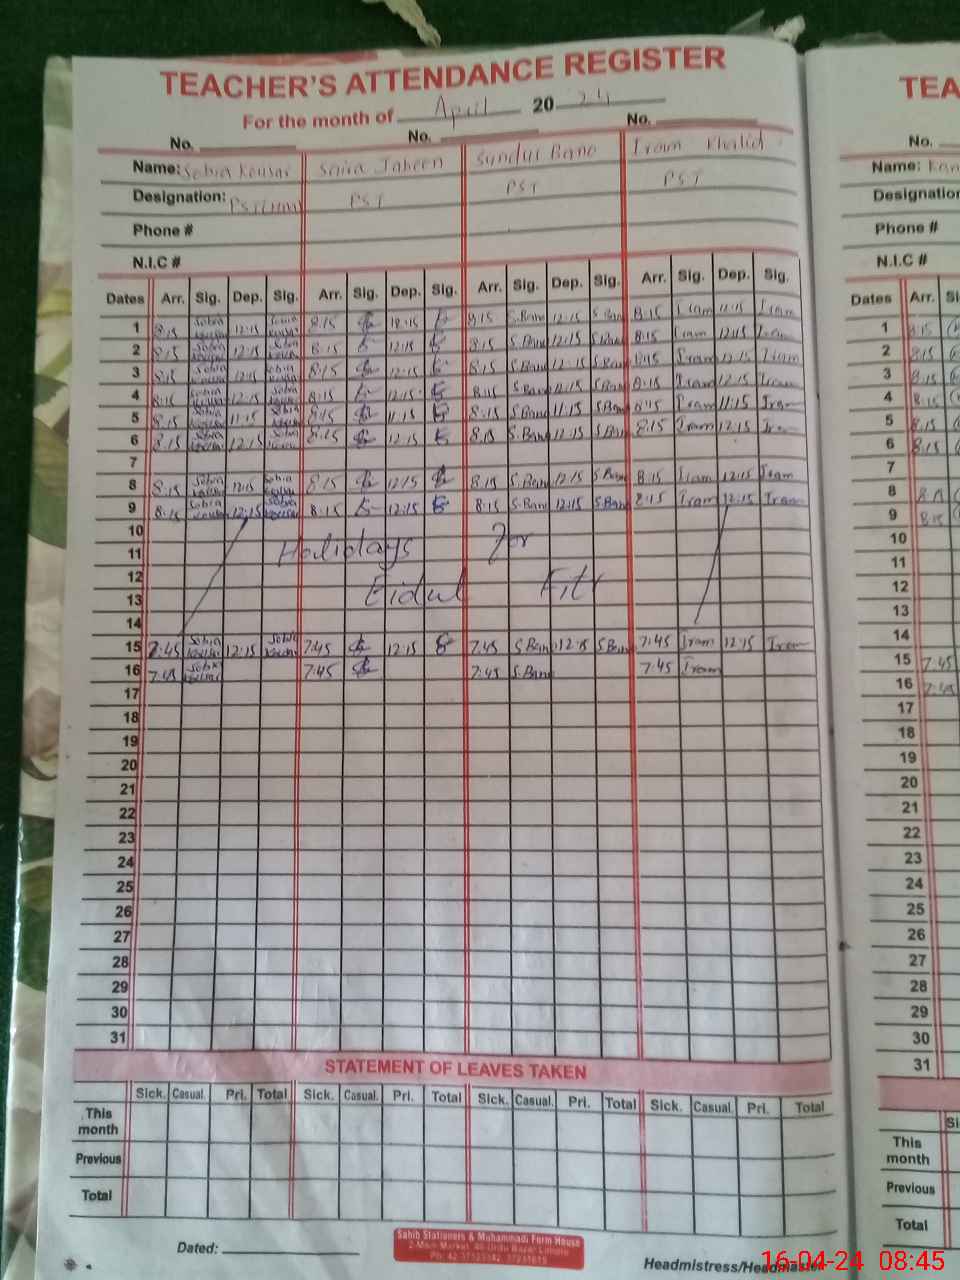 TEACHER'S ATTENDANCE REGISTER
TEA
For the month of April 20 24
No. No. No. No.
Name: Sobia Kousar Saira Jabeen Sundus Bano Iram Khalid Name:
Designation: PST PST PST Designation
Phone # Phone #
N.I.C # N.I.C #
Dates Arr. Sig. Dep. Sig. Arr. Sig. Dep. Sig. Arr. Sig. Dep. Sig. Arr. Sig. Dep. Sig. Dates Arr. Si
1 8:15 Sobia Kousar 12:15 Sobia Kousar 8:15 12:15 8:15 S.Bano 12:15 S.Bano 8:15 Iram 12:15 Iram 1 8:15
2 8:15 Sobia Kousar 12:15 Sobia Kousar 8:15 12:15 8:15 S.Bano 12:15 S.Bano 8:15 Iram 12:15 Iram 2 8:15
3 8:15 Sobia Kousar 12:15 Sobia Kousar 8:15 12:15 8:15 S.Bano 12:15 S.Bano 8:15 Iram 12:15 Iram 3 8:15
4 8:15 Sobia Kousar 12:15 Sobia Kousar 8:15 12:15 8:15 S.Bano 12:15 S.Bano 8:15 Iram 12:15 Iram 4 8:15
5 8:15 Sobia Kousar 11:15 Sobia Kousar 8:15 11:15 8:15 S.Bano 11:15 S.Bano 8:15 Iram 11:15 Iram 5 8:15
6 8:15 Sobia Kousar 12:15 Sobia Kousar 8:15 12:15 8:15 S.Bano 12:15 S.Bano 8:15 Iram 12:15 Iram 6 8:15
7 7
8 8:15 Sobia Kousar 12:15 Sobia Kousar 8:15 12:15 8:15 S.Bano 12:15 S.Bano 8:15 Iram 12:15 Iram 8 8:15
9 8:15 Sobia Kousar 12:15 Sobia Kousar 8:15 12:15 8:15 S.Bano 12:15 S.Bano 8:15 Iram 12:15 Iram 9 8:15
10 10
11 Holidays For 11
12 12
13 Eidul Fitr 13
14 14
15 7:45 Sobia Kousar 12:15 Sobia Kousar 7:45 12:15 7:45 S.Bano 12:15 S.Bano 7:45 Iram 12:15 Iram 15 7:45
16 7:45 Sobia Kousar 7:45 7:45 S.Bano 7:45 Iram 16 7:45
17 17
18 18
19 19
20 20
21 21
22 22
23 23
24 24
25 25
26 26
27 27
28 28
29 29
30 30
31 31
STATEMENT OF LEAVES TAKEN
Sick. Casual. Pri. Total Sick. Casual. Pri. Total Sick. Casual. Pri. Total Sick. Casual. Pri. Total Si
This month This month
Previous Previous
Total Total
Dated:
Sahib Stationers & Muhammadi Form House
2-Main Market, 40-Urdu Bazar Lahore
Headmistress/Headmaster
16-04-24 08:45